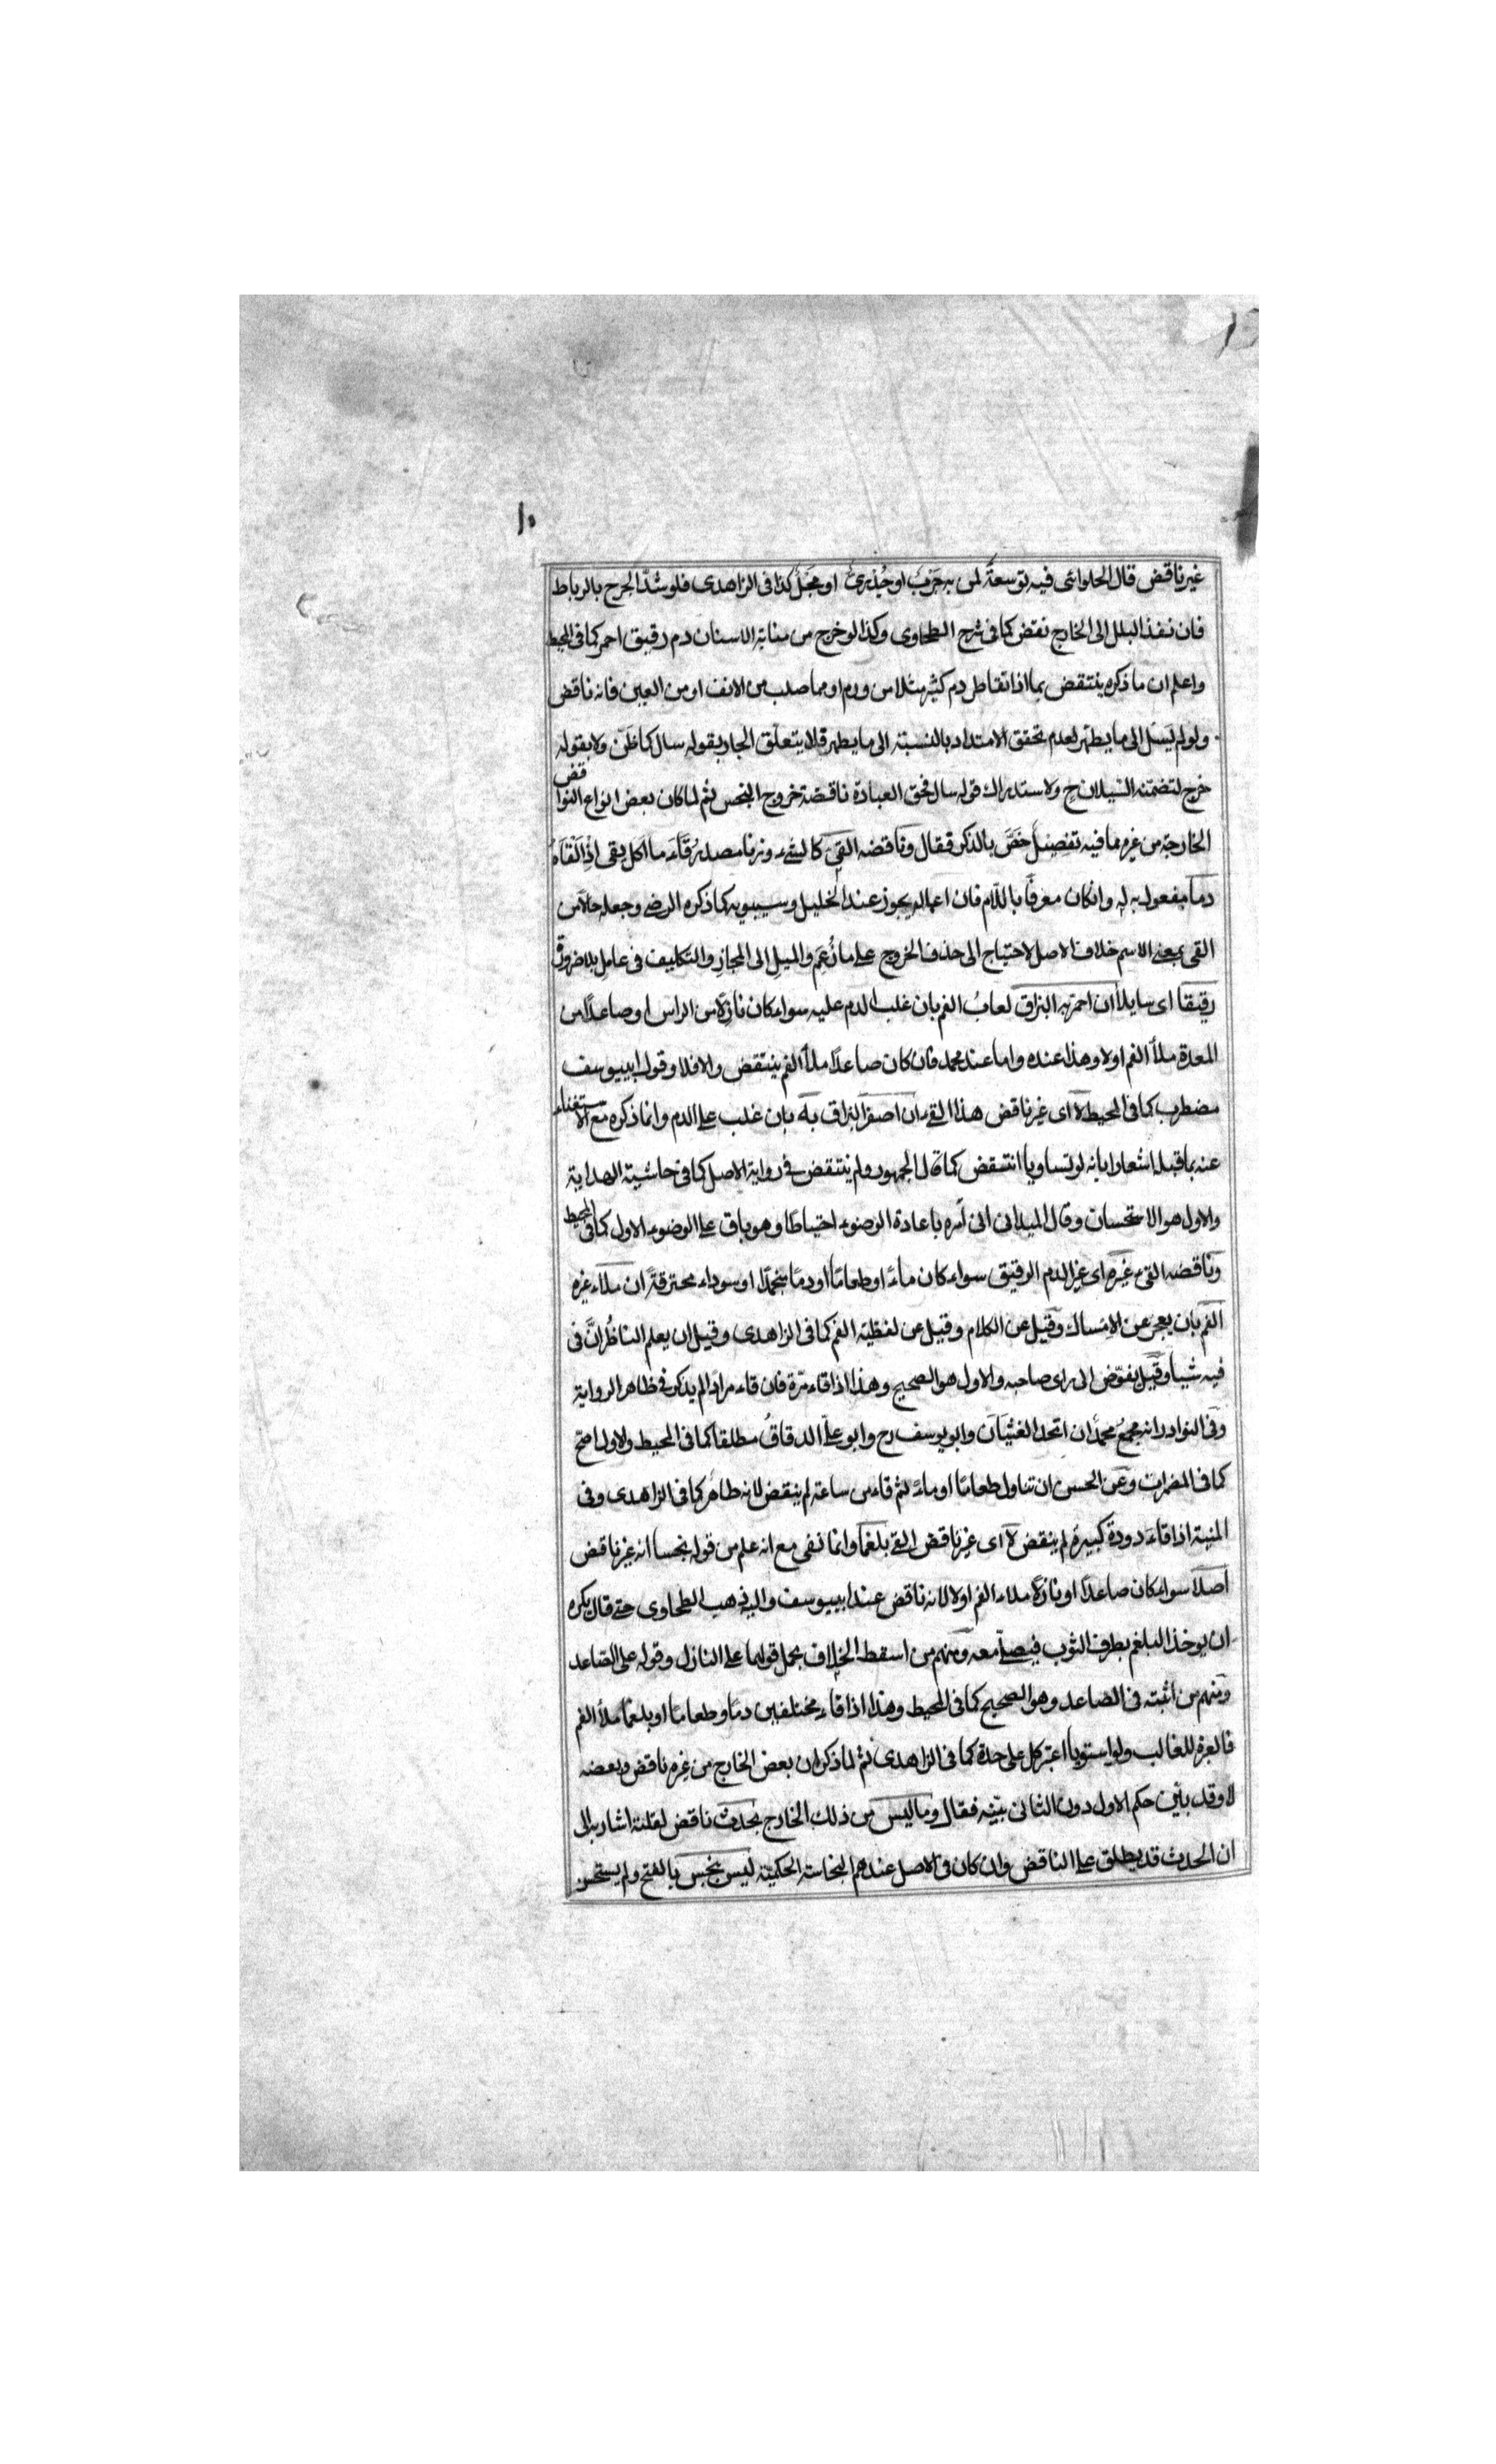 ١٠
غير ناقض قال الحلوائى فيه توسعة لمن به جرب او جدرى او مجل كذا فى الزاهدى فلو شد الجرح بالرباط
فان نفذ البلل الى الخارج نقض كما فى شرح الطحاوى وكذا لو خرج من منابة الاسنان دم رقيق احمر كما فى المحيط
واعلم ان ما ذكره ينتقض بما اذا تقاطر دم كثير مثلا من ورم او مما صلب من الانف او من العين فانه ناقض
ولو لم يسل الى ما يطهر لعدم تحقق الامتداد بالنسبة الى ما يطهر فلا يتعلق الجار بقوله سال كما ظن ولا بقوله
خرج لتضمنه السيلان ح ولاستدراك قوله سال فحق العبادة ناقضة خروج النجس ثم لما كان بعض انواع النواقض
الخارجة من غيرهما فيه تفصيل خص بالذكر فقال وناقضه القئ كالشئ وزنا مصدر قاء ما اكل يقى اذا القاه
دما مفعول به له وانكان معرفا باللام فان اعماله يجوز عند الخليل وسيبويه كما ذكره الرضى وجعله حالا من
القى بمعنى الاسم خلاف الاصل لاحتياج الى حذف الخروج على ما زعم والميل الى المجاز والتكليف فى عامل بلا ضرورة
رقيقا اى سايلا ان احمر به البزاق لعاب الفم بان غلب الدم عليه سواء كان نازلا من الراس او صاعدا من
المعدة ملأ الفم اولا وهذا عنده واما عند محمد فان كان صاعدا ملأ الفم ينتقض والا فلا وقول ابييوسف
مضطرب كما فى المحيط لا اى غير ناقض هذا القئ ان اصفر البزاق به بان غلب على الدم وانما ذكره مع الاستغناء
عنه بما قبله اشعارا بانه لو تساويا انتقض كما قال الجمهور ولم ينتقض فى رواية الاصل كما فى حاشية الهداية
والاول هو الاستحسان وقال الميدانى انى آمره باعادة الوضوء احتياطا وهو باق على الوضوء الاول كما فى المحيط
وناقضه القئ غيره اى غير الدم الرقيق سواء كان ماء او طعاما او دما منجمدا او سوداء محترقة ان ملاء غيره
الفم بان يعجز عن الامساك وقيل عن الكلام وقيل عن لفظية الفم كما فى الزاهدى وقيل ان يعلم الناظر ان فى
فيه شيئا وقيل يفوض الى راى صاحبه والاول هو الصحيح وهذا اذا قاء مرة فان قاء مرارا لم يذكر فى ظاهر الرواية
وفى النوادر انه يجمع محمد ان اتحد الغثيان وابو يوسف رح وابو على الدقاق مطلقا كما فى المحيط والاول اصح
كما فى المضمرات وعن الحسن ان تناول طعاما او ماء ثم قاء من ساعته لم ينقض لانه طاهر كما فى الزاهدى وفى
المنية اذا قاء دودة كبيرة لم ينقض لا اى غير ناقض القئ بلغما وانما نفى مع انه علم من قوله نجسا انه غير ناقض
اصلا سواء كان صاعدا او نازلا ملاء الفم اولا لانه ناقض عند ابييوسف واليه ذهب الطحاوى حتى قال يكره
ان يوخذ البلغم بطرف الثوب فيصلى معه ومنهم من اسقط الخلاف بحمل قولهما على النازل وقوله على الصاعد
ومنهم من اثبته فى الصاعد وهو الصحيح كما فى المحيط وهذا اذا قاء مختلفين دما وطعاما او بلغما ملأ الفم
فالعبرة للغالب ولو استويا اعتبر كل على حدة كما فى الزاهدى ثم لما ذكر ان بعض الخارج من غيره ناقض وبعضه
لا وقد بين حكم الاول دون الثانى بينه فقال وما ليس من ذلك الخارج بحدث ناقض لقلته اشار به الى
ان الحدث قد يطلق على الناقض وان كان فى الاصل عندهم النجاسة الحكمية ليس بنجس بالفتح ولم يستحسن